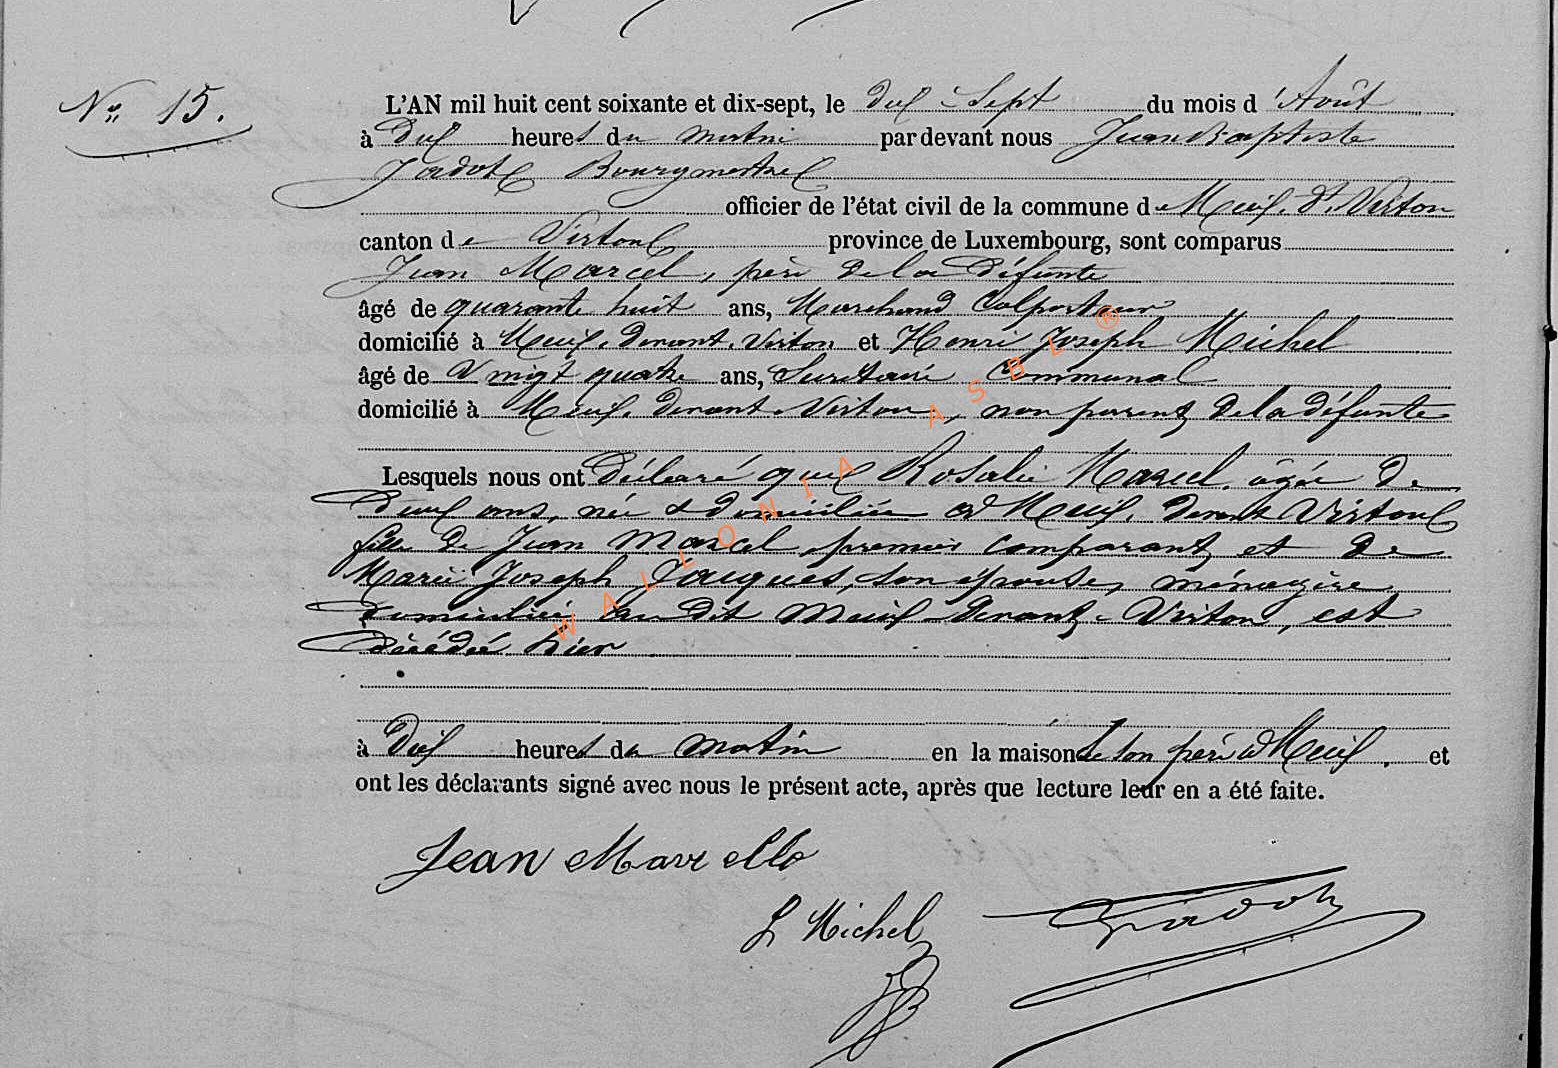 No 15.
L'AN mil huit cent soixante et dix-sept, le dix Sept du mois d'Août
à Dix heures du matin par devant nous Jean Baptiste
Jadot Bourgmestre
officier de l'état civil de la commune de Meix. dt. Virton
canton de Virton province de Luxembourg, sont comparus
Jean Marcel, père de la défunte
âgé de quarante huit ans, Marchand Colporteur
domicilié à Meix. devant. Virton et Henri Joseph Michel
âgé de Vingt quatre ans, Secrétaire Communal
domicilié à Meix. devant. Virton, non parent de la défunte
Lesquels nous ont déclaré que Rosalie Marcel, âgée de
deux ans, née & domiciliée à Meix. devant Virton
fille de Jean Marcel, premier comparant et de
Marie Joseph Jacques, son épouse, ménagère
domiciliée au dit Meix-devant-Virton, est
décédée hier
à Dix heures du matin en la maison de son père à Meix. et
ont les déclarants signé avec nous le présent acte, après que lecture leur en a été faite.
Jean Marcelle
h Michel
Jadot
WALLONIA ASBL ®